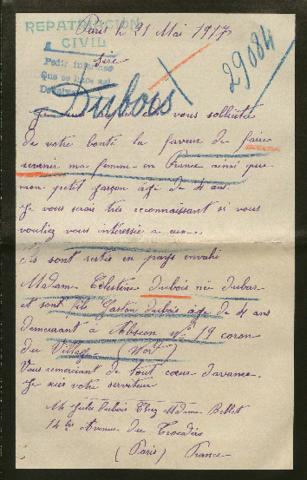 Paris le 21 Mai 1917
REPATRIACION
CIVIL
Sire
Pedir
Que se
29084
Dubois
vous sollicite
de votre bonté la faveur de faire
revenir ma femme en France ainsi que
mon petit garson agé de 4 ans.
Je vous serais très reconnaissant si vous
vouliez vous intéressé a eux.
Ils sont restés en pays envahi
Madame Célestine Dubois née Dubar
et sont fils Gaston Dubois agé de 4 ans
demeurant à Abscon N° 19 coron
du Village (Nord)
Vous remerciant de tout cœur d'avance
Je suis votre serviteur
Mr Jules Dubois Chez Madame Billet
14 bis Avenue du Trocadéro
(Paris) France